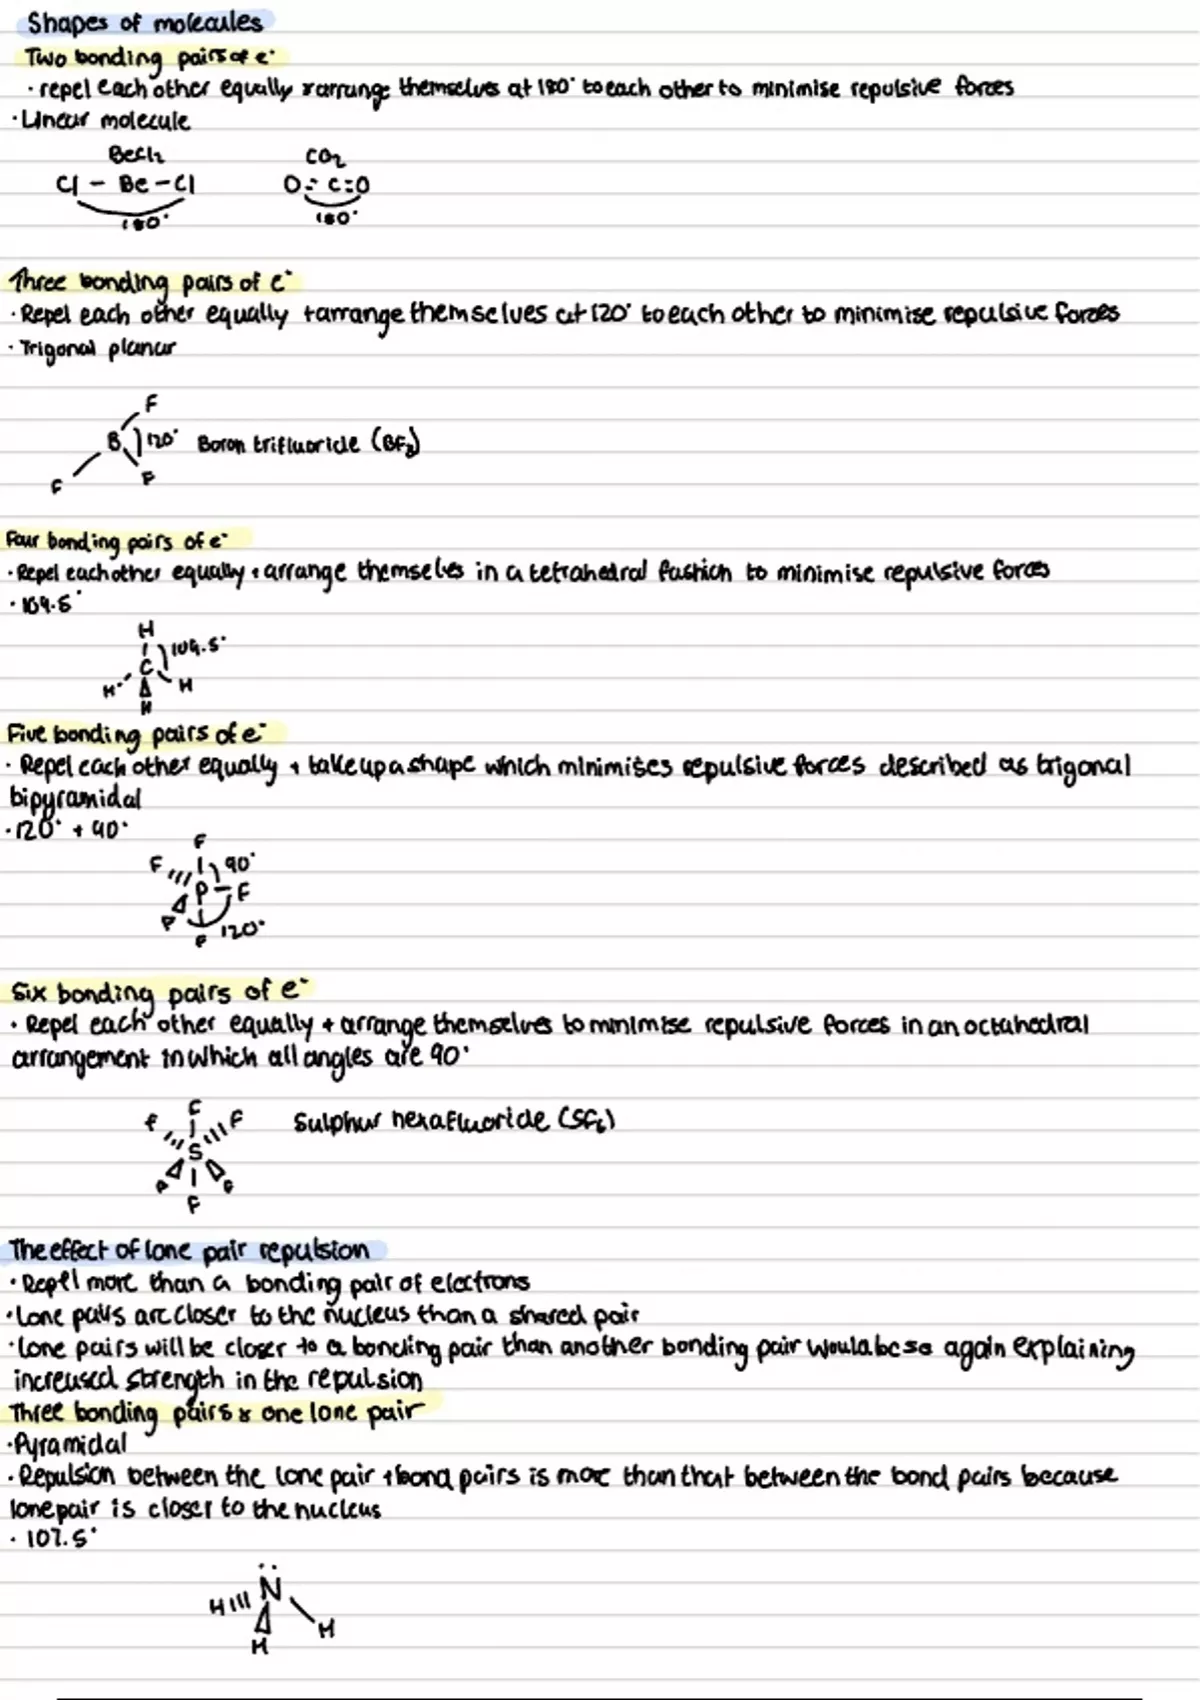 Shapes of molecules
Two bonding pairs of e⁻
· repel each other equally + arrange themselves at 180° to each other to minimise repulsive forces
· Linear molecule
BeCl₂ CO₂
Cl - Be - Cl O = C = O
180° 180°
Three bonding pairs of e⁻
· Repel each other equally + arrange themselves at 120° to each other to minimise repulsive forces
· Trigonal planar
F
B 120° Boron trifluoride (BF₃)
F F
Four bonding pairs of e⁻
· Repel each other equally + arrange themselves in a tetrahedral fashion to minimise repulsive forces
· 109.5°
H
109.5°
C
H H
H
Five bonding pairs of e⁻
· Repel each other equally + take up a shape which minimises repulsive forces described as trigonal
bipyramidal
· 120° + 90°
F
F 90°
P - F
F
F 120°
Six bonding pairs of e⁻
· Repel each other equally + arrange themselves to minimise repulsive forces in an octahedral
arrangement in which all angles are 90°
F
F F Sulphur hexafluoride (SF₆)
S
F F
F
The effect of lone pair repulsion
· Repel more than a bonding pair of electrons
· Lone pairs are closer to the nucleus than a shared pair
· Lone pairs will be closer to a bonding pair than another bonding pair would be so again explaining
increased strength in the repulsion
Three bonding pairs & one lone pair
· Pyramidal
· Repulsion between the lone pair + bond pairs is more than that between the bond pairs because
lone pair is closer to the nucleus
· 107.5°
N
H
H
H